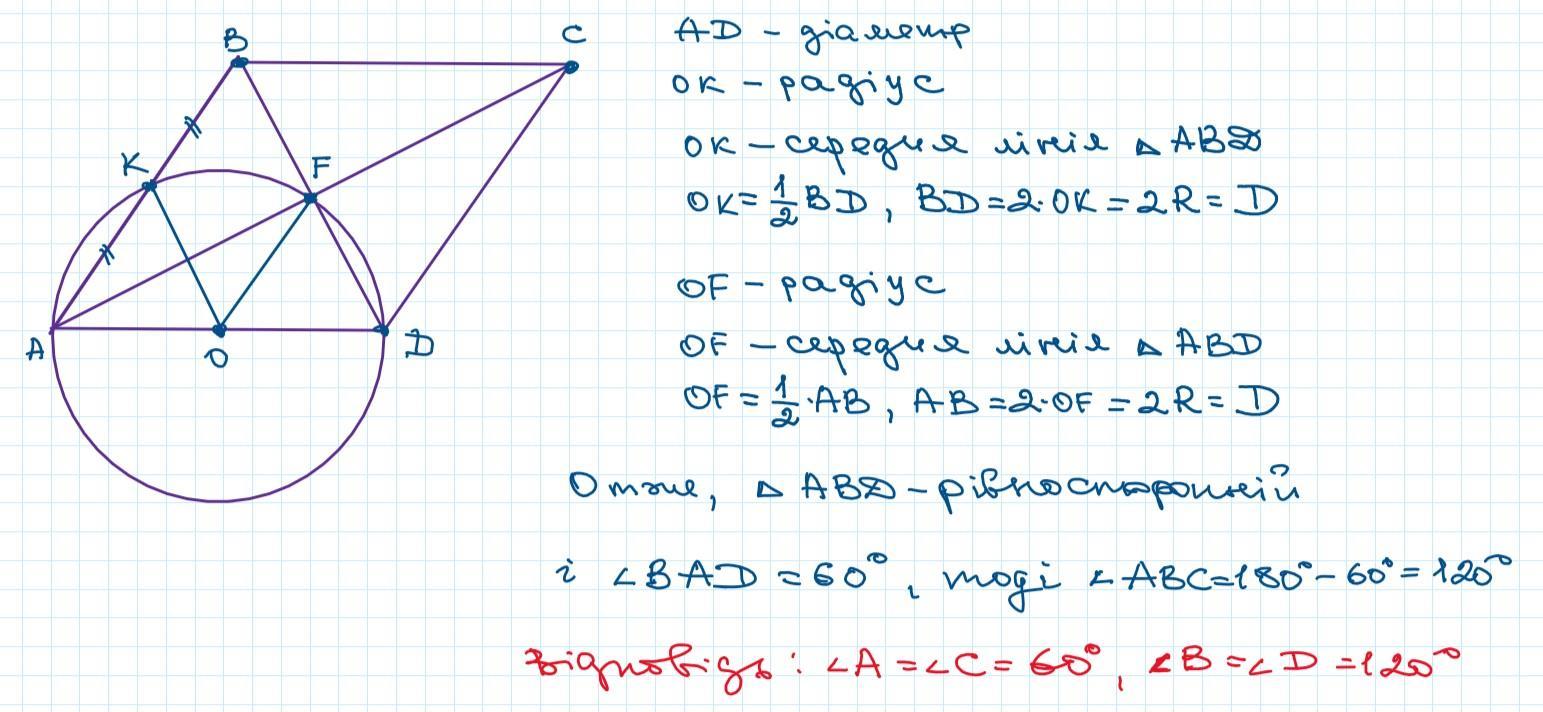 B
C
K
F
A
O
D
AD - діаметр
OK - радіус
OK - середня лінія △ ABD
OK = 1/2 BD, BD = 2·OK = 2R = D
OF - радіус
OF - середня лінія △ ABD
OF = 1/2 · AB, AB = 2·OF = 2R = D
Отже, △ ABD - рівносторонній
і ∠BAD = 60°, тоді ∠ABC = 180° - 60° = 120°
Відповідь: ∠A = ∠C = 60°, ∠B = ∠D = 120°